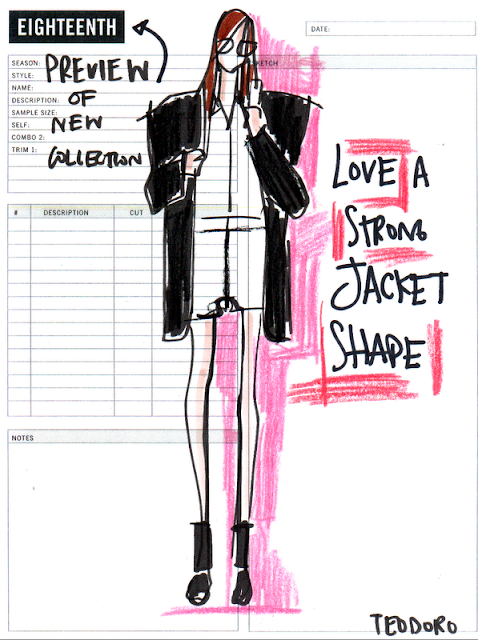 EIGHTEENTH
DATE:
SEASON:
STYLE:
NAME:
DESCRIPTION:
SAMPLE SIZE:
SELF:
COMBO 2:
TRIM 1:
PREVIEW
OF
NEW
COLLECTION
LOVE A
STRONG
JACKET
SHAPE
# DESCRIPTION CUT
NOTES
TEODORO